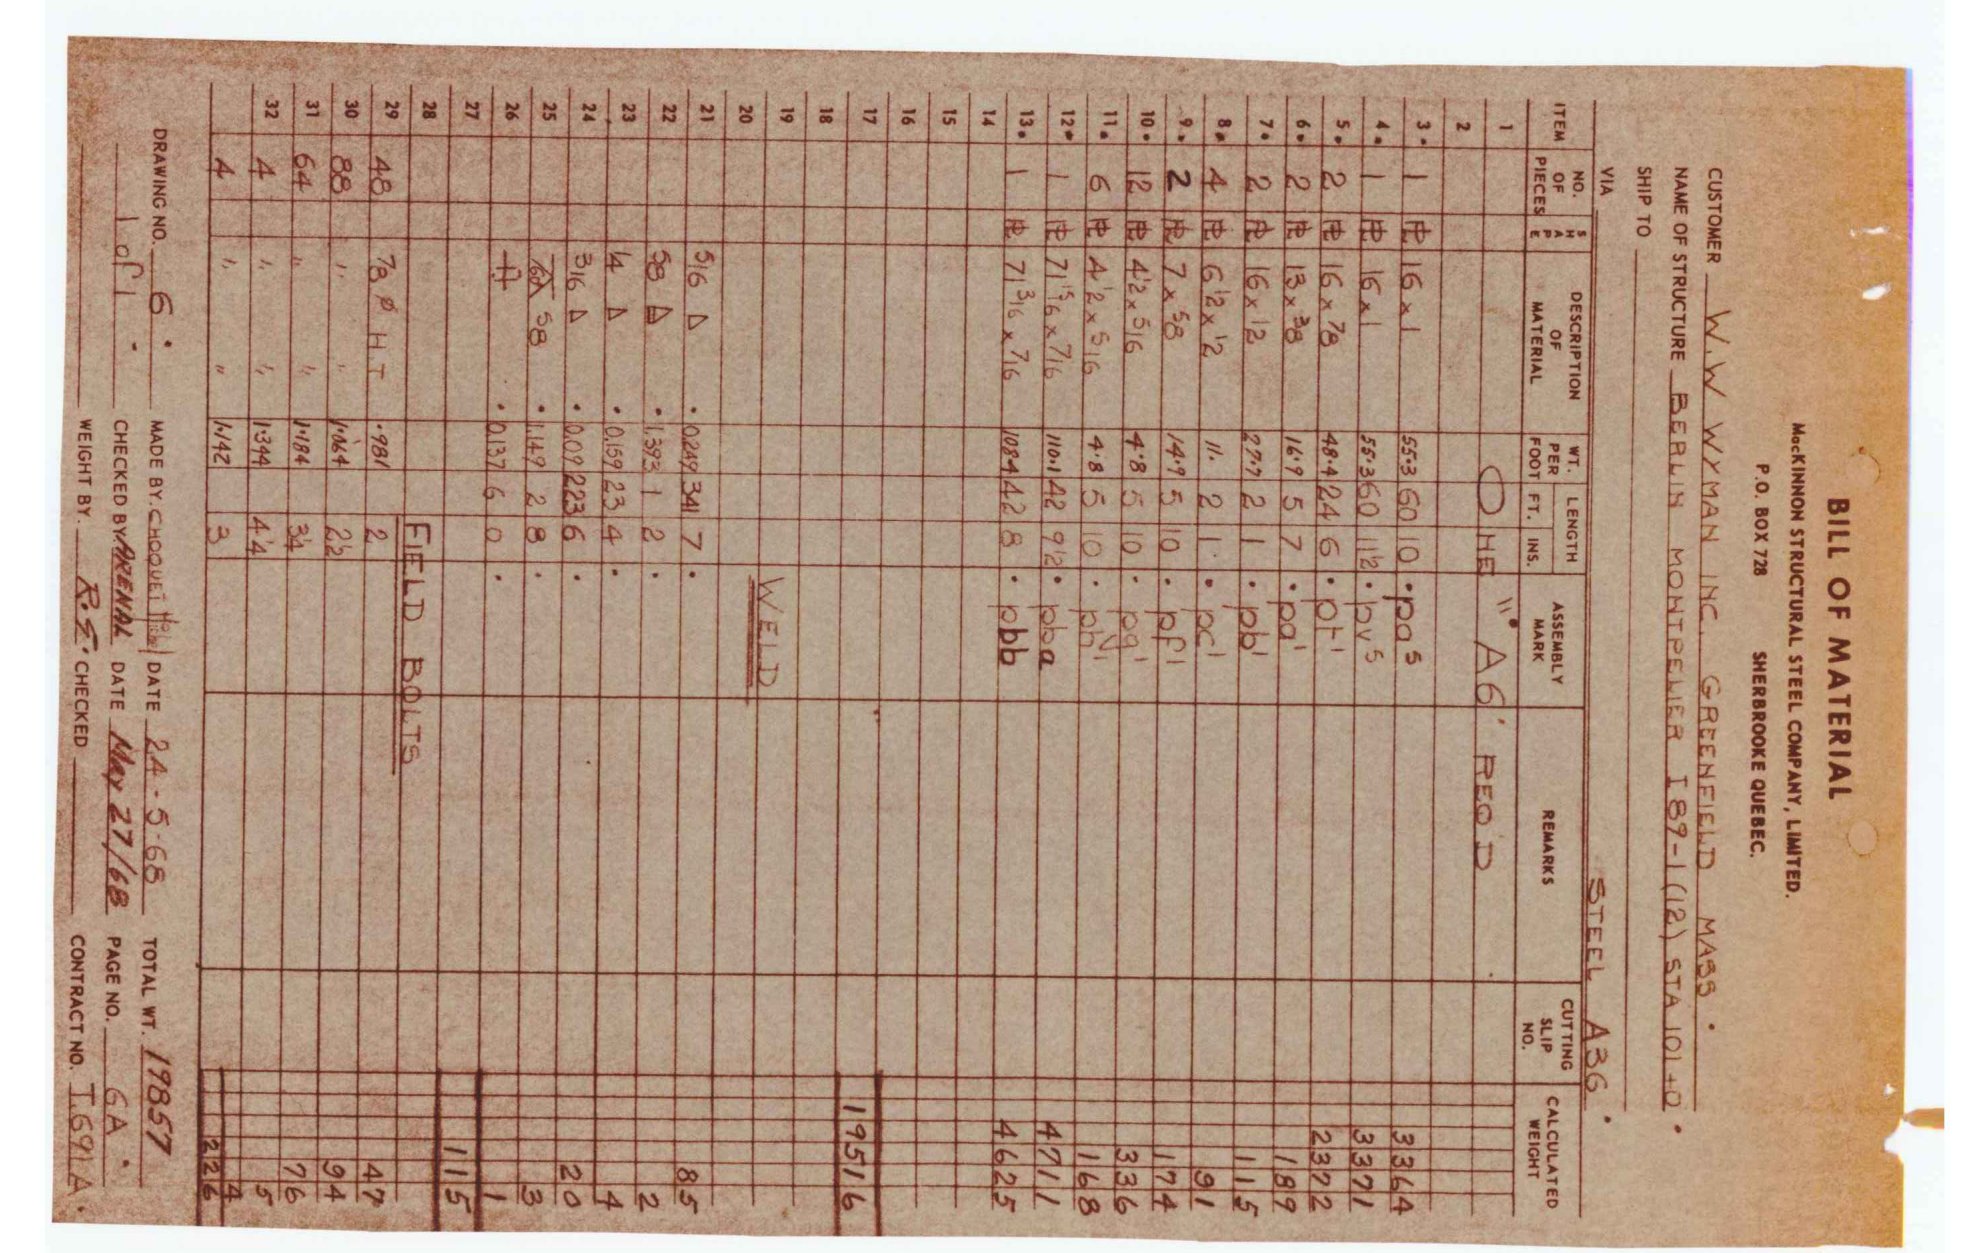 BILL OF MATERIAL
MacKINNON STRUCTURAL STEEL COMPANY, LIMITED.
P.O. BOX 728 SHERBROOKE QUEBEC.
CUSTOMER W.W WYMAN INC. GREENFIELD MASS.
NAME OF STRUCTURE BERLIN MONTPELIER I 89-1 (12) STA 101+0
SHIP TO
VIA STEEL A36
ITEM NO. OF PIECES SHAPE DESCRIPTION OF MATERIAL WT. PER FOOT LENGTH FT. INS. ASSEMBLY MARK REMARKS CUTTING SLIP NO. CALCULATED WEIGHT
1 ONE "A6" REQ'D
2
3. 1 PL 16 x 1 55.3 60 10 pa5 3364
4. 1 PL 16 x 1 55.3 60 11 1/2 pv5 3371
5. 2 PL 16 x 7/8 48.4 24 6 pt1 2372
6. 2 PL 13 x 3/8 16.9 5 7 pa1 189
7. 2 PL 16 x 1/2 27.7 2 1 pb1 115
8. 4 PL 6 1/2 x 1/2 11. 2 1 pc1 91
9. 2 PL 7 x 5/8 14.9 5 10 pf1 174
10. 12 PL 4 1/2 x 5/16 4.8 5 10 pg1 336
11. 6 PL 4 1/2 x 5/16 4.8 5 10 ph1 168
12. 1 PL 71 15/16 x 7/16 110.1 42 9 1/2 pba 4711
13. 1 PL 71 3/16 x 7/16 108.4 42 8 pbb 4625
14
15
16
17 19516
18
19
20 WELD
21 5/16 .0249 341 7 85
22 5/8 1.393 1 2 2
23 1/4 .0159 23 4 4
24 3/16 .009 223 6 20
25 60 5/8 1.149 2 8 3
26 .0137 6 0 1
27 115
28 FIELD BOLTS
29 48 7/8 Ø H T .981 2 47
30 88 " " 1.064 2 1/2 94
31 64 " " 1.184 3 1/4 76
32 4 " " 1.344 4 1/4 5
4 " " 1.142 3 4
226
DRAWING NO. 6 MADE BY. CHOQUET DATE 24-5-68 TOTAL WT. 19857
1 of 1 CHECKED BY ARENAL DATE May 27/68 PAGE NO. 6A
WEIGHT BY. R.E. CHECKED CONTRACT NO. T691A.